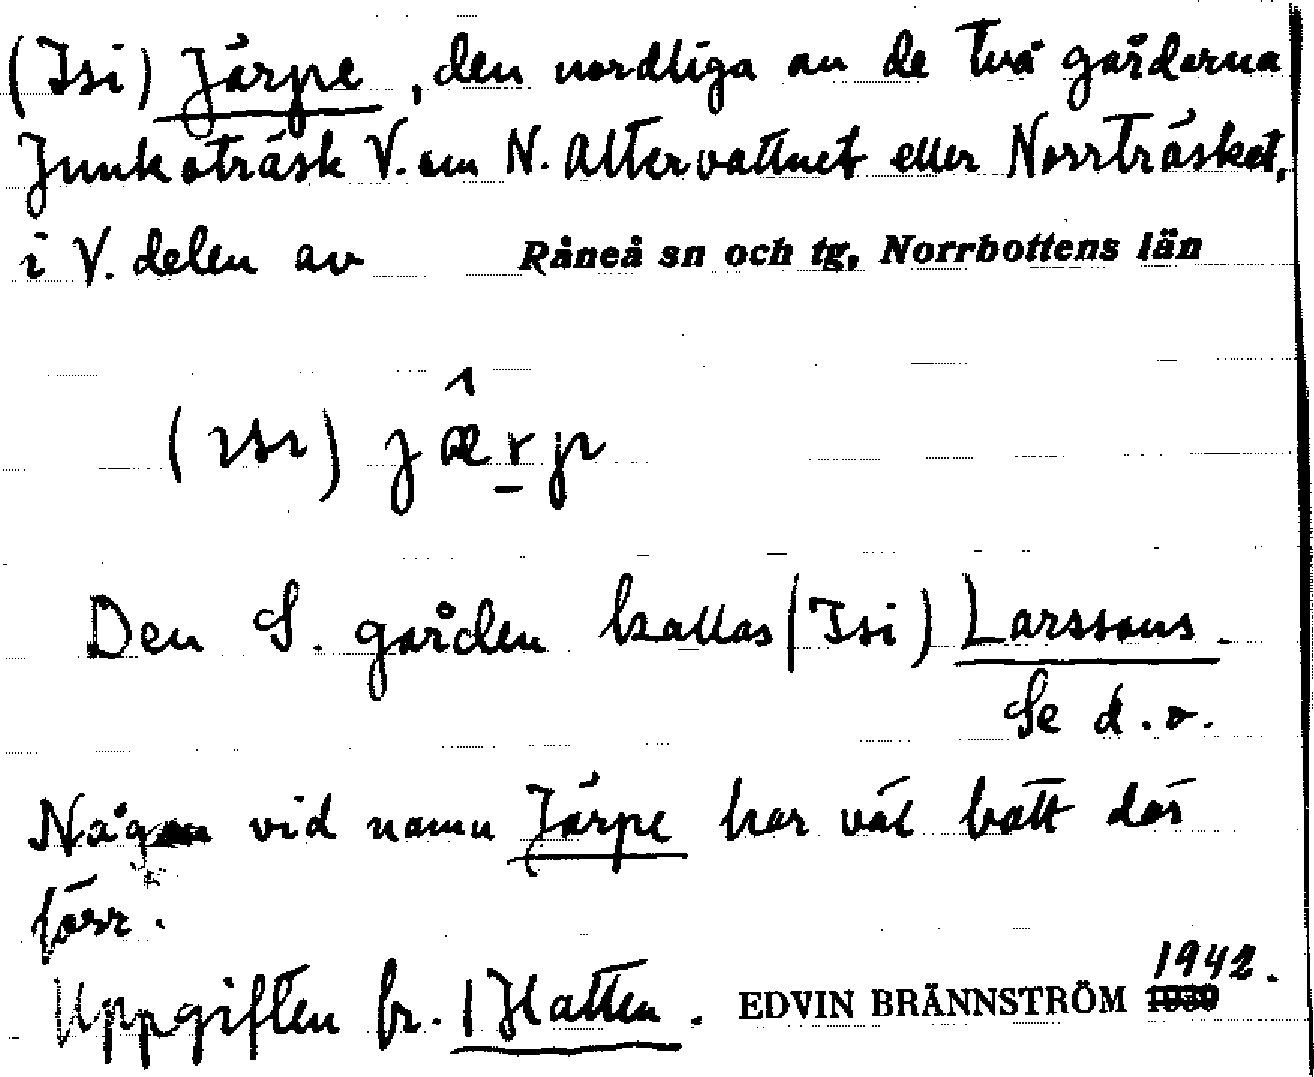 (Isi) Järpe, den nordliga av de två gårdarna
Junkoträsk V. om N. Altervattnet eller Norrträsket,
i V. delen av Råneå sn och tg, Norrbottens län
(ısı) jæ̂rp
Den S. gården kallas (Isi) Larssons.
Se d. o.
Någon vid namn Järpe har väl bott där
förr.
Uppgiften fr. Hatten. EDVIN BRÄNNSTRÖM 1942.